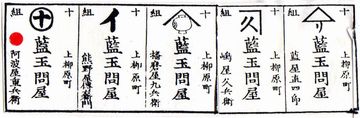 十組
上柳原町
藍玉問屋
藍屋四郎
十組
久
上柳原町
藍玉問屋
嶋屋久兵衛
十組
上柳原町
藍玉問屋
播磨屋九兵衛
十組
イ
上柳原町
藍玉問屋
熊野屋
十組
十
上柳原町
藍玉問屋
阿波屋重兵衛